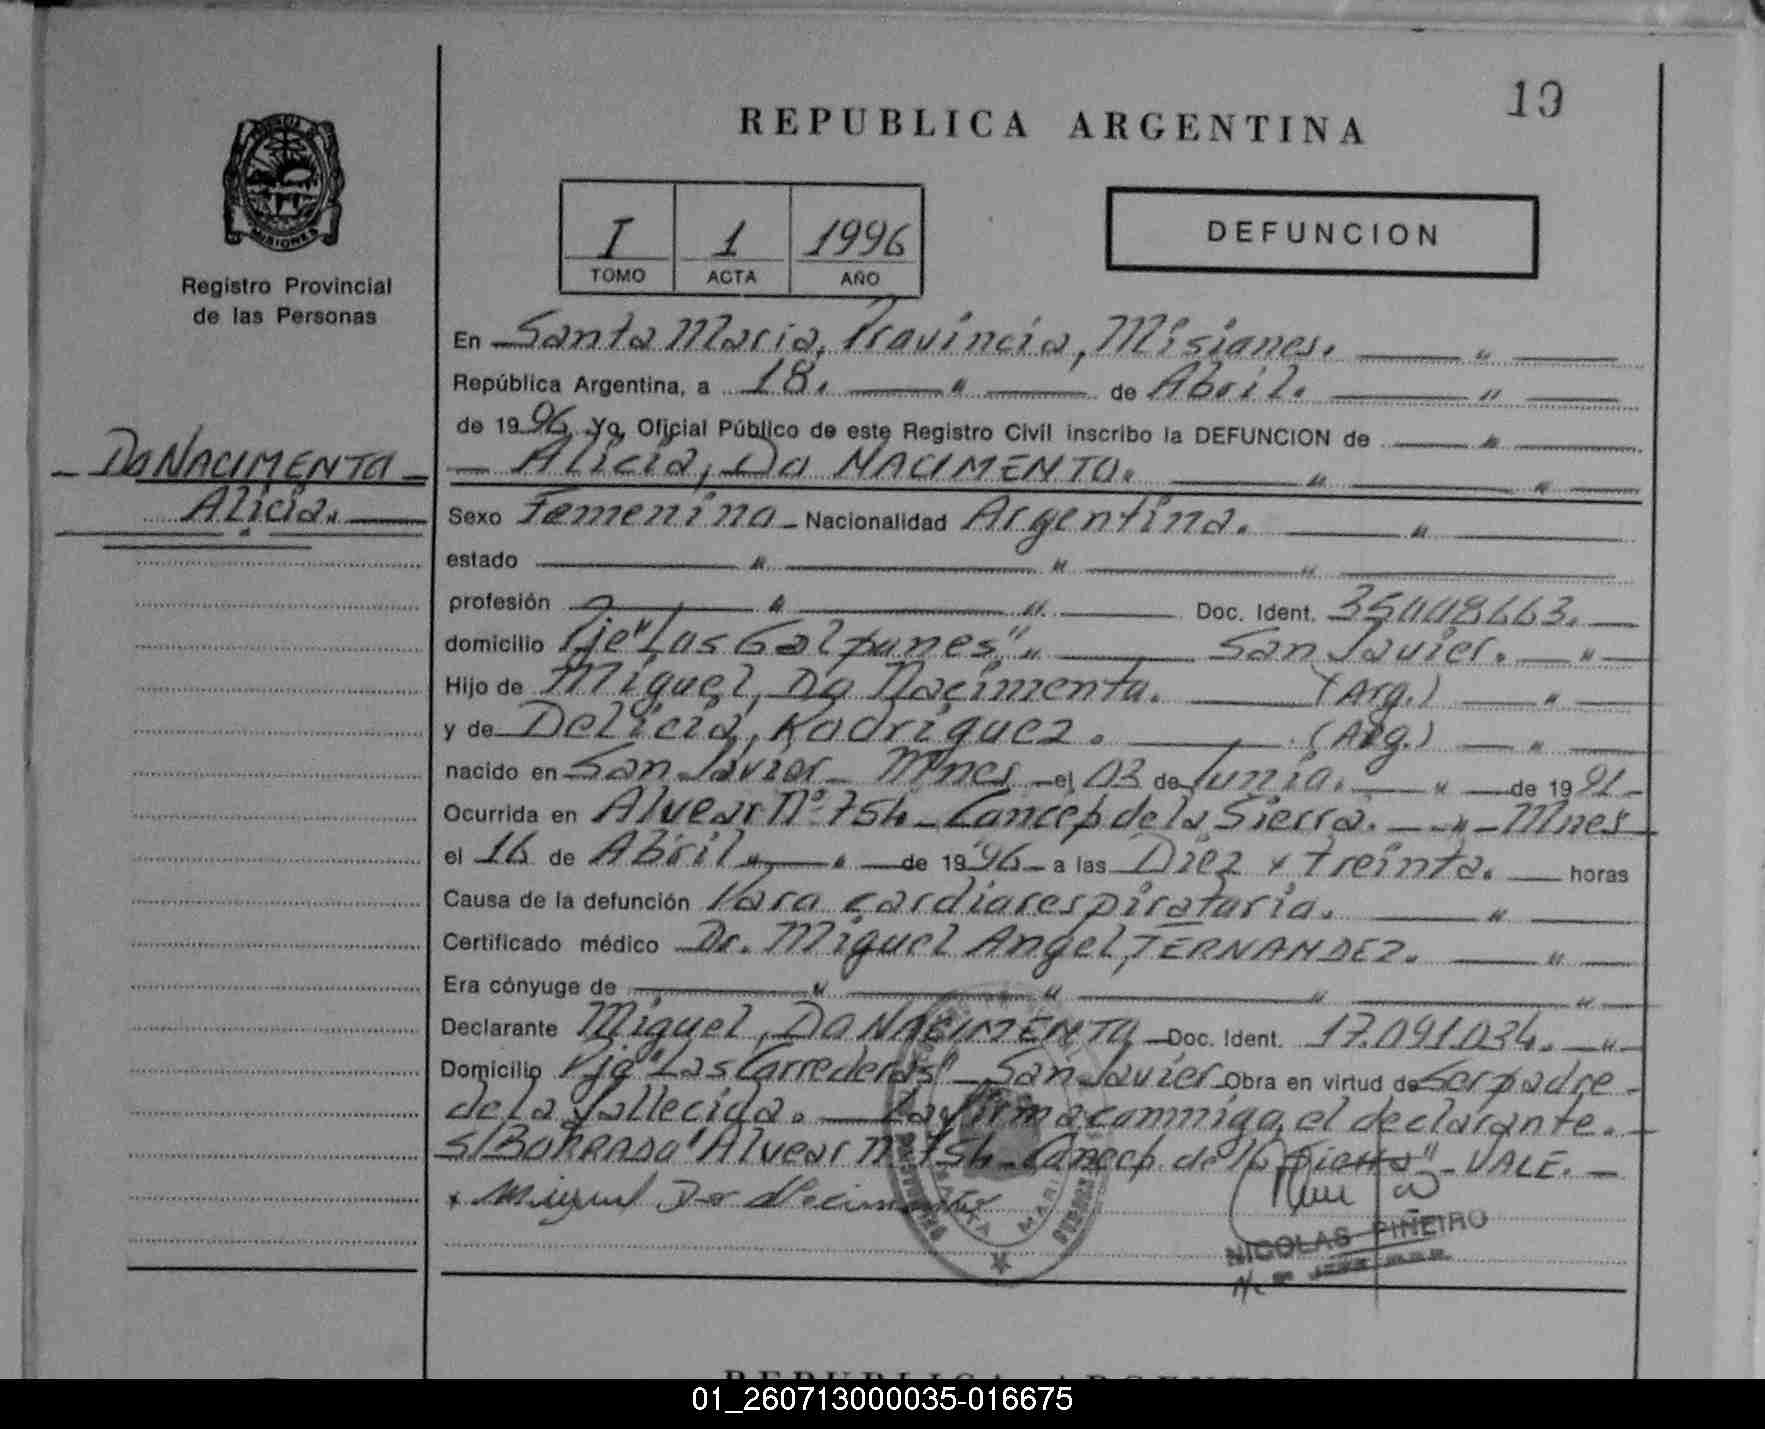 19
REPUBLICA ARGENTINA
I 1 1996
TOMO ACTA AÑO
DEFUNCION
MISIONES
Registro Provincial
de las Personas
DO NACIMENTO
Alicia.
En Santa Maria, Provincia, Misiones.
República Argentina, a 18. de Abril.
de 1996. Yo, Oficial Público de este Registro Civil inscribo la DEFUNCION de
Alicia, Do NACIMENTO.
Sexo Femenino - Nacionalidad Argentina.
estado
profesión Doc. Ident.
domicilio Pje "Los Galpones" San Javier.
Hijo de Miguel, Do Nacimento. (Arg.)
y de Delicia, Rodriguez. (Arg.)
nacido en San Javier - Mnes - el 03 de Junio. de 1991-
Ocurrida en Alvear Nº 754 - Concep de la Sierra. - Mnes
el 16 de Abril de 1996 - a las Diez y treinta. horas
Causa de la defunción Paro cardiorespiratorio.
Certificado médico Dr. Miguel Angel, FERNANDEZ.
Era cónyuge de
Declarante Miguel, DO NACIMENTO - Doc. Ident. 17.091.034.
Domicilio Pje "Las Correderas" - San Javier - Obra en virtud de Ser padre
de la fallecida. La firma conmigo, el declarante.
S/BORRADO "Alvear Nº 754 - Concep. de la Sierra" - VALE. -
Miguel Do Nacimento
NICOLAS PIÑEIRO
REPUBLICA ARGENTINA
01_260713000035-016675